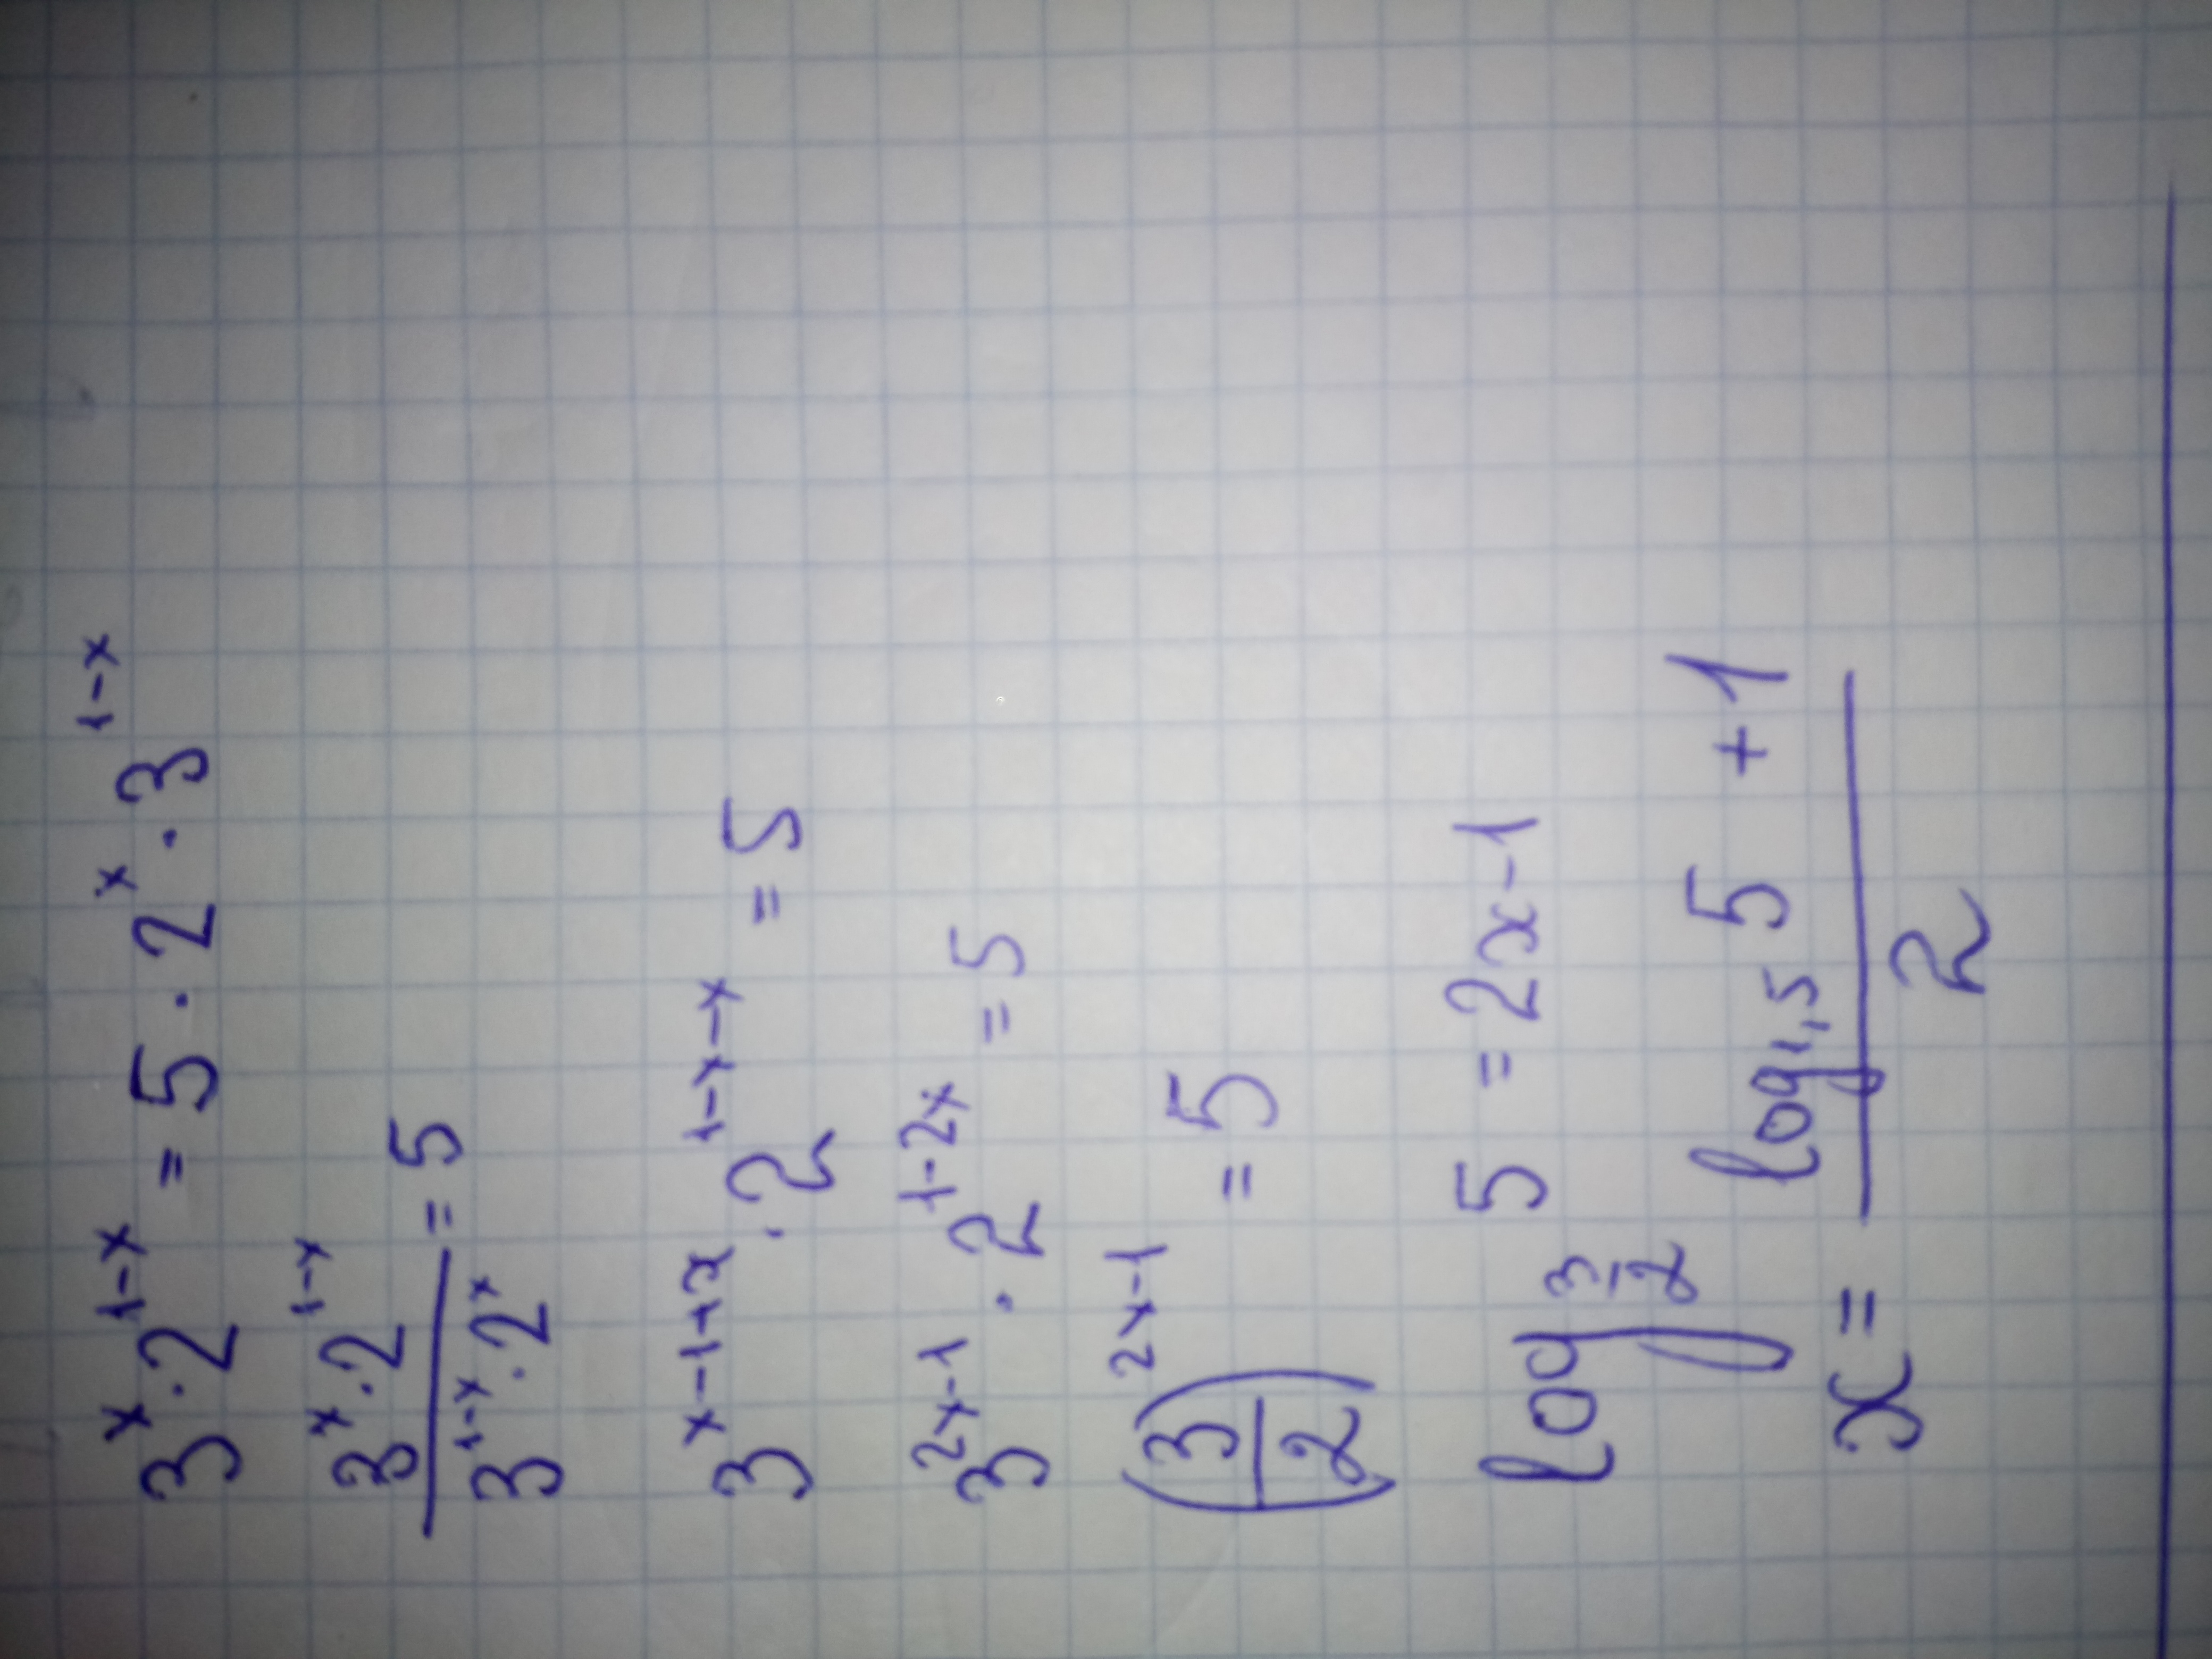 3^x · 2^{1-x} = 5 · 2^x · 3^{1-x}
\frac{3^x · 2^{1-x}}{3^{1-x} · 2^x} = 5
3^{x-1+x} · 2^{1-x-x} = 5
3^{2x-1} · 2^{1-2x} = 5
(\frac{3}{2})^{2x-1} = 5
log_{\frac{3}{2}} 5 = 2x-1
x = \frac{log_{1,5} 5 + 1}{2}